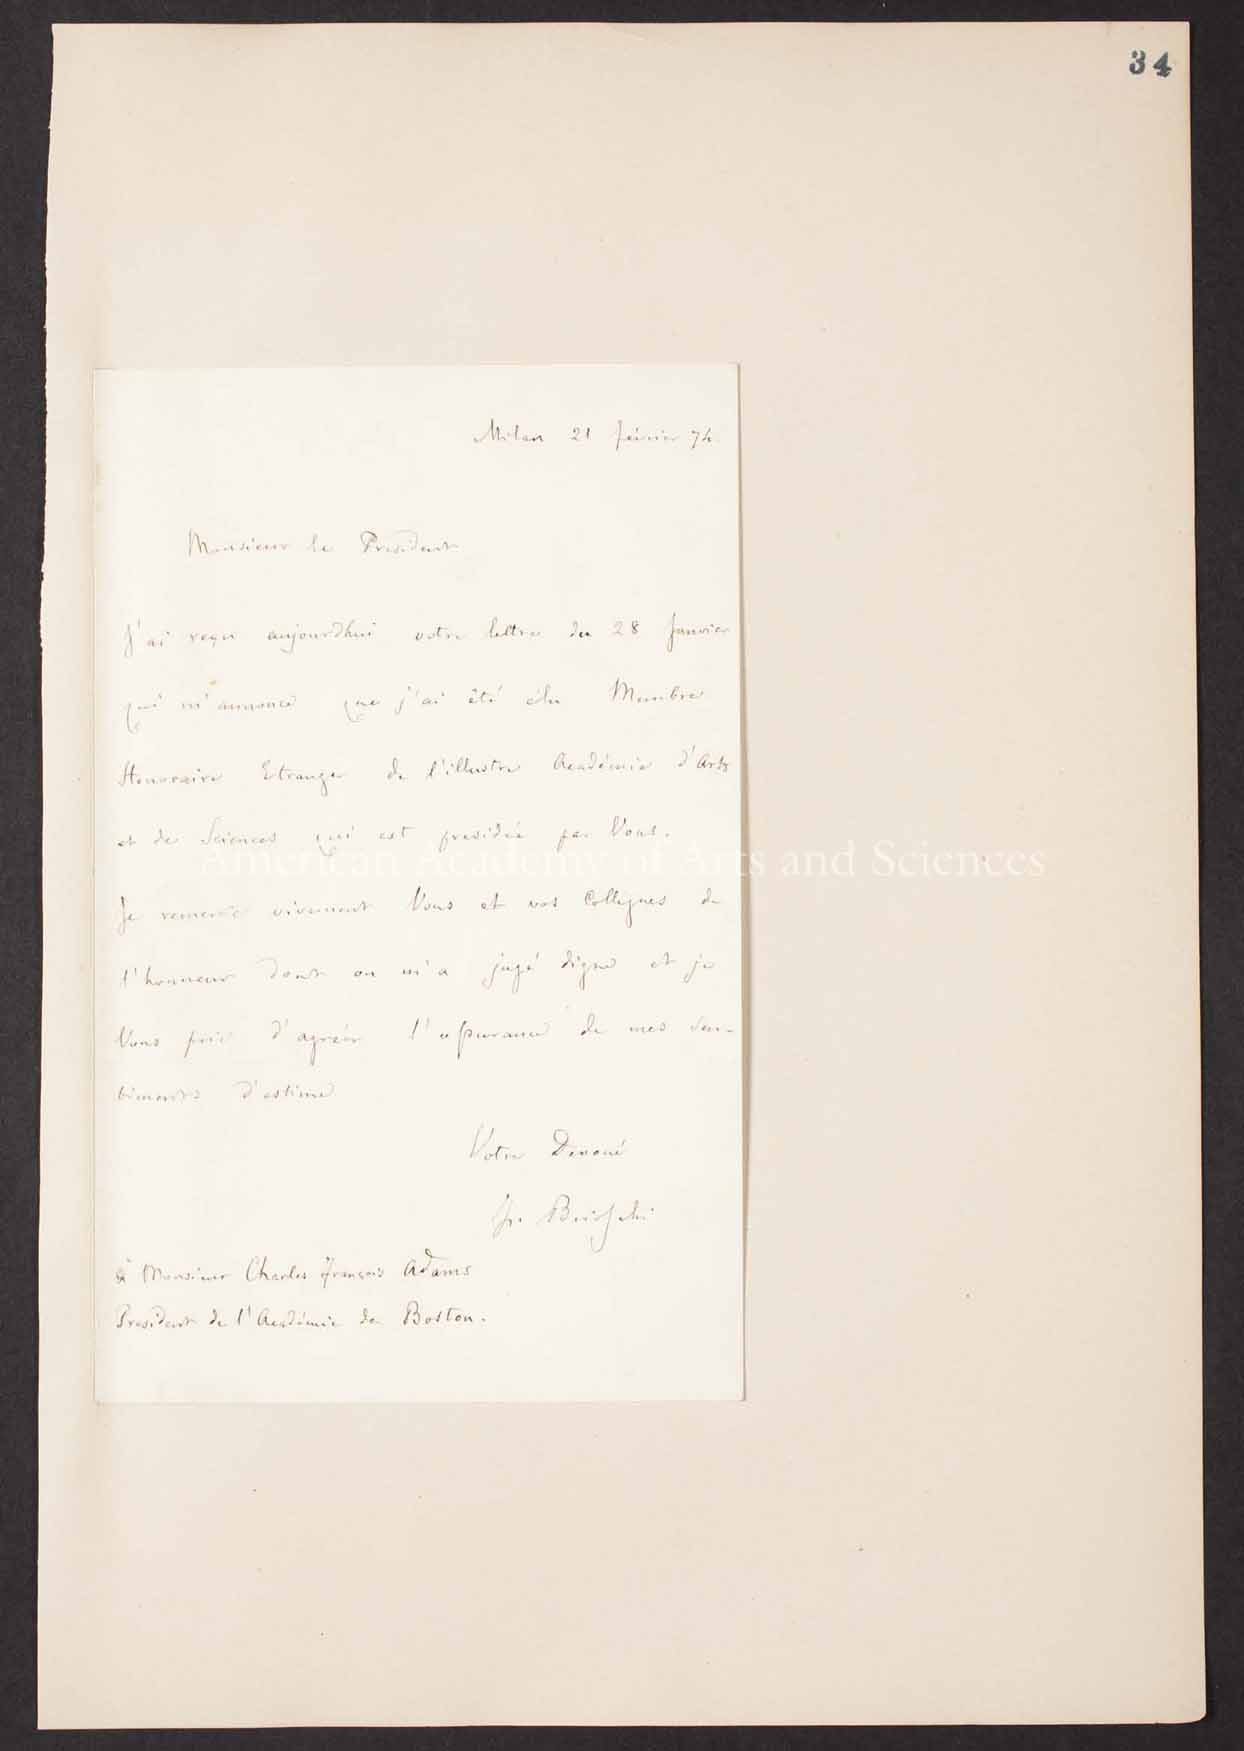 34
Milan 21 février 74.
Monsieur le President
J'ai reçu aujourdhui votre lettre du 28 Janvier
qui m'annonce que j'ai été élu Membre
Honoraire Etranger de l'illustre Académie d'Arts
et de Sciences qui est presidée par Vous.
American Academy of Arts and Sciences
Je remercie vivement Vous et vos Collegues de
l'honneur dont on m'a jugé digne et je
Vous prie d'agréer l'assurance de mes sen-
timents d'estime
Votre Devoué
Fr. Brioschi
à Monsieur Charles François Adams
President de l'Académie de Boston.